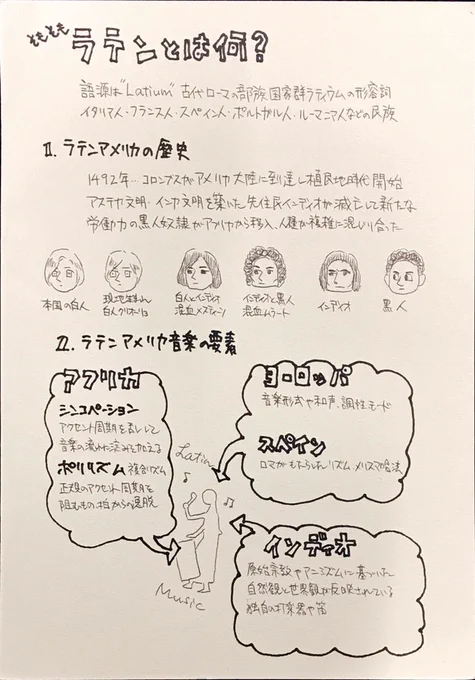 そもそも ラテンとは何?
語源は"Latium" 古代ローマの部族国家群ラティウムの形容詞
イタリア人・フランス人・スペイン人・ポルトガル人・ルーマニア人などの民族
II. ラテンアメリカの歴史
1492年…コロンブスがアメリカ大陸に到達し植民地時代開始
アステカ文明・インカ文明を築いた先住民インディオが滅亡して新たな
労働力の黒人奴隷がアフリカから移入、人種が複雑に混じり合った
本国の白人
現地生まれ
白人クリオーリョ
白人とインディオ
混血メスティーソ
インディオと黒人
混血ムラート
インディオ
黒人
III. ラテンアメリカ音楽の要素
アフリカ
シンコペーション
アクセント周期を乱して
音楽の流れに歪みを加える
ポリリズム 複合リズム
正規のアクセント周期を
阻むもの、拍からの逸脱
ヨーロッパ
音楽形式や和声、調性モード
スペイン
ロマがもたらしたリズム、メリスマ唱法
インディオ
原始宗教やアニミズムに基づいた
自然観と世界観が反映されている
独自の打楽器や笛
Latin
Music